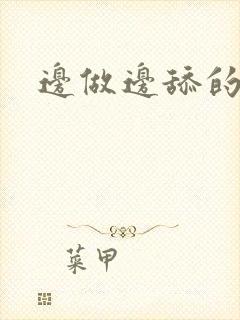 邊做邊舔的
菜甲